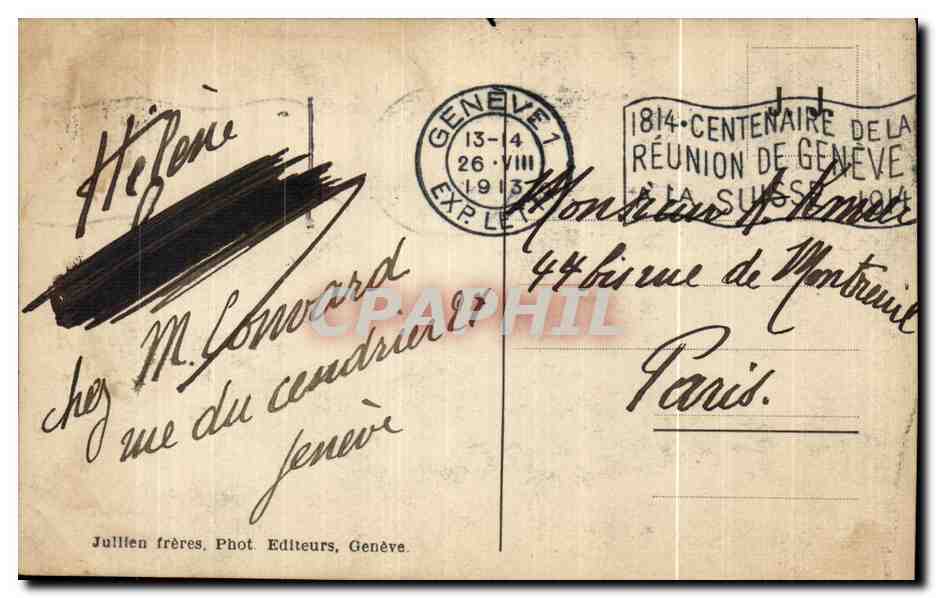 Hélène
chez M. Convard
rue du cendrier 27
Genève
Jullien frères, Phot. Editeurs, Genève.
GENÈVE 1
13-14
26·VIII
1913
EXP. LET
1814·CENTENAIRE DE LA
RÉUNION DE GENÈVE
À LA SUISSE 1914
Monsieur A.
44 bis rue de Montreuil
Paris.
CPAPHIL